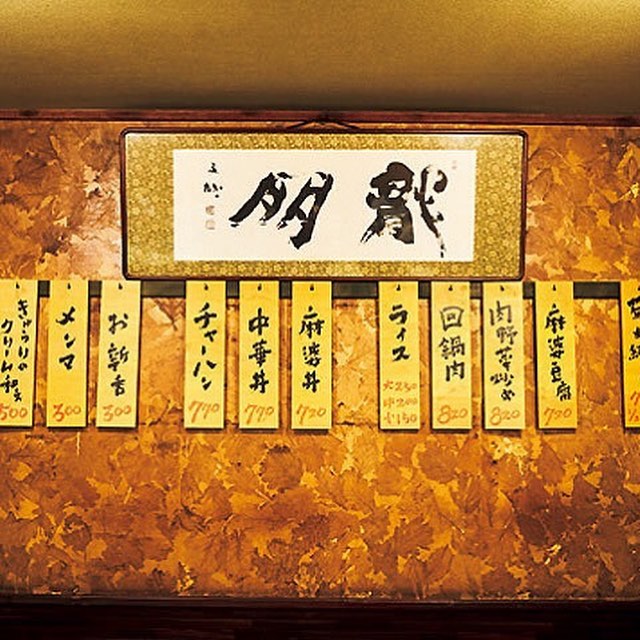 龍朋
麻婆豆腐
720
肉野菜炒め
820
回鍋肉
820
ライス
大250
中200
小150
麻婆丼
720
中華丼
770
チャーハン
770
お新香
300
メンマ
300
きゅうりの
クリーム和え
500